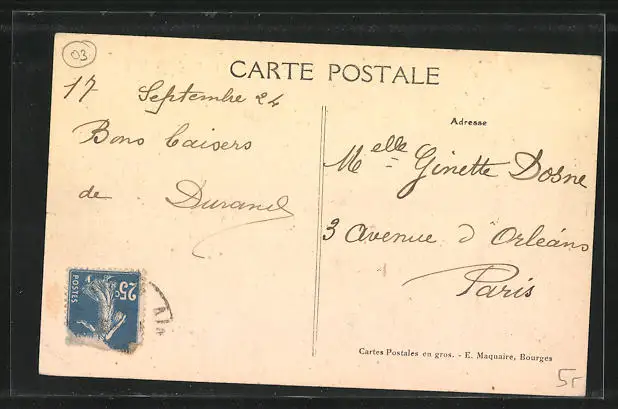 03
CARTE POSTALE
17 Septembre 24
Bons baisers
de Durand
Adresse
Melle Ginette Dosne
3 Avenue d'Orléans
Paris
25c
POSTES
Cartes Postales en gros. - E. Maquaire, Bourges